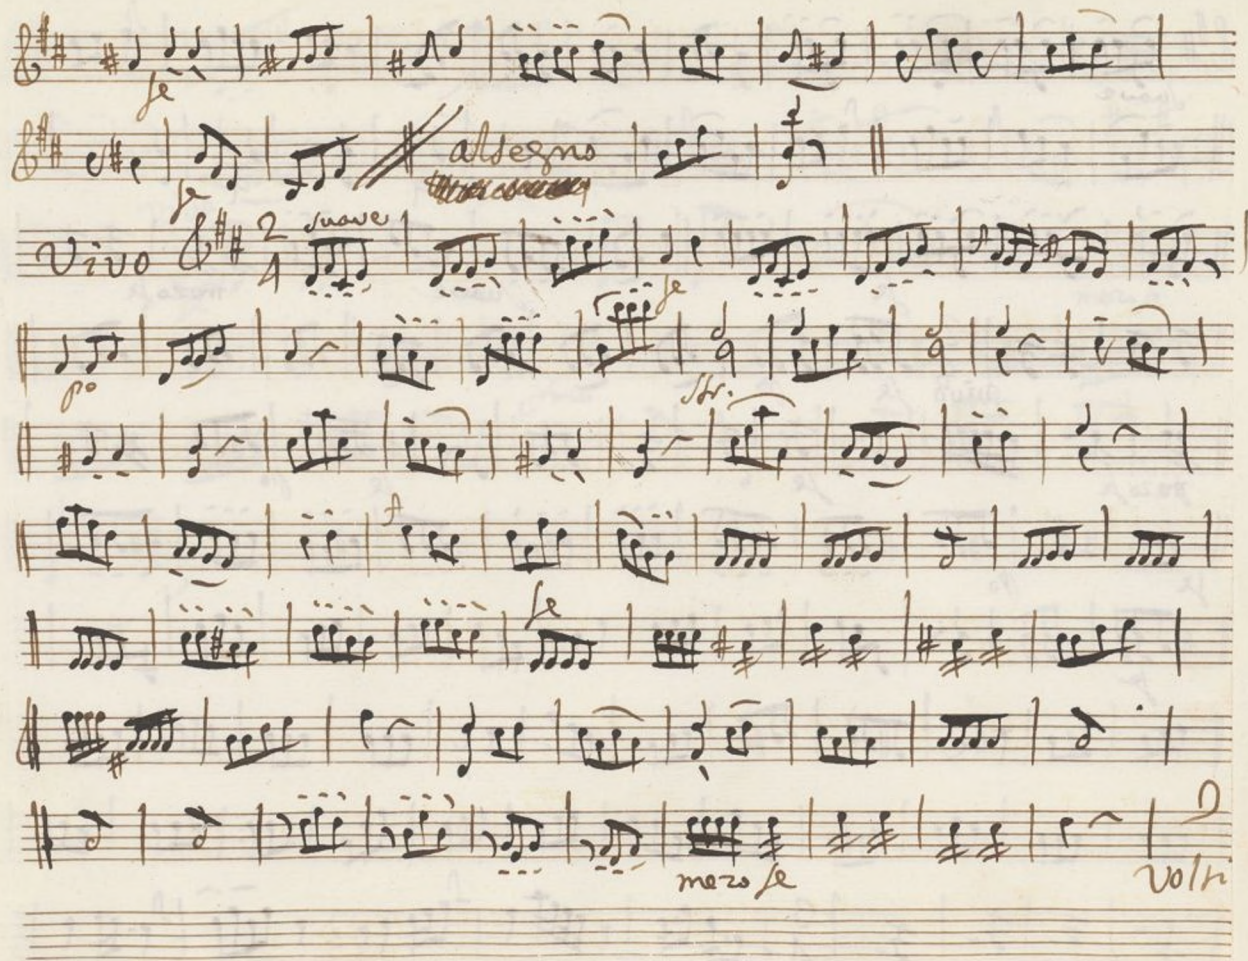 fe
fe alsegno
Vivo 2 4 suave
fe
po
f
fe
mezo fe
Volti